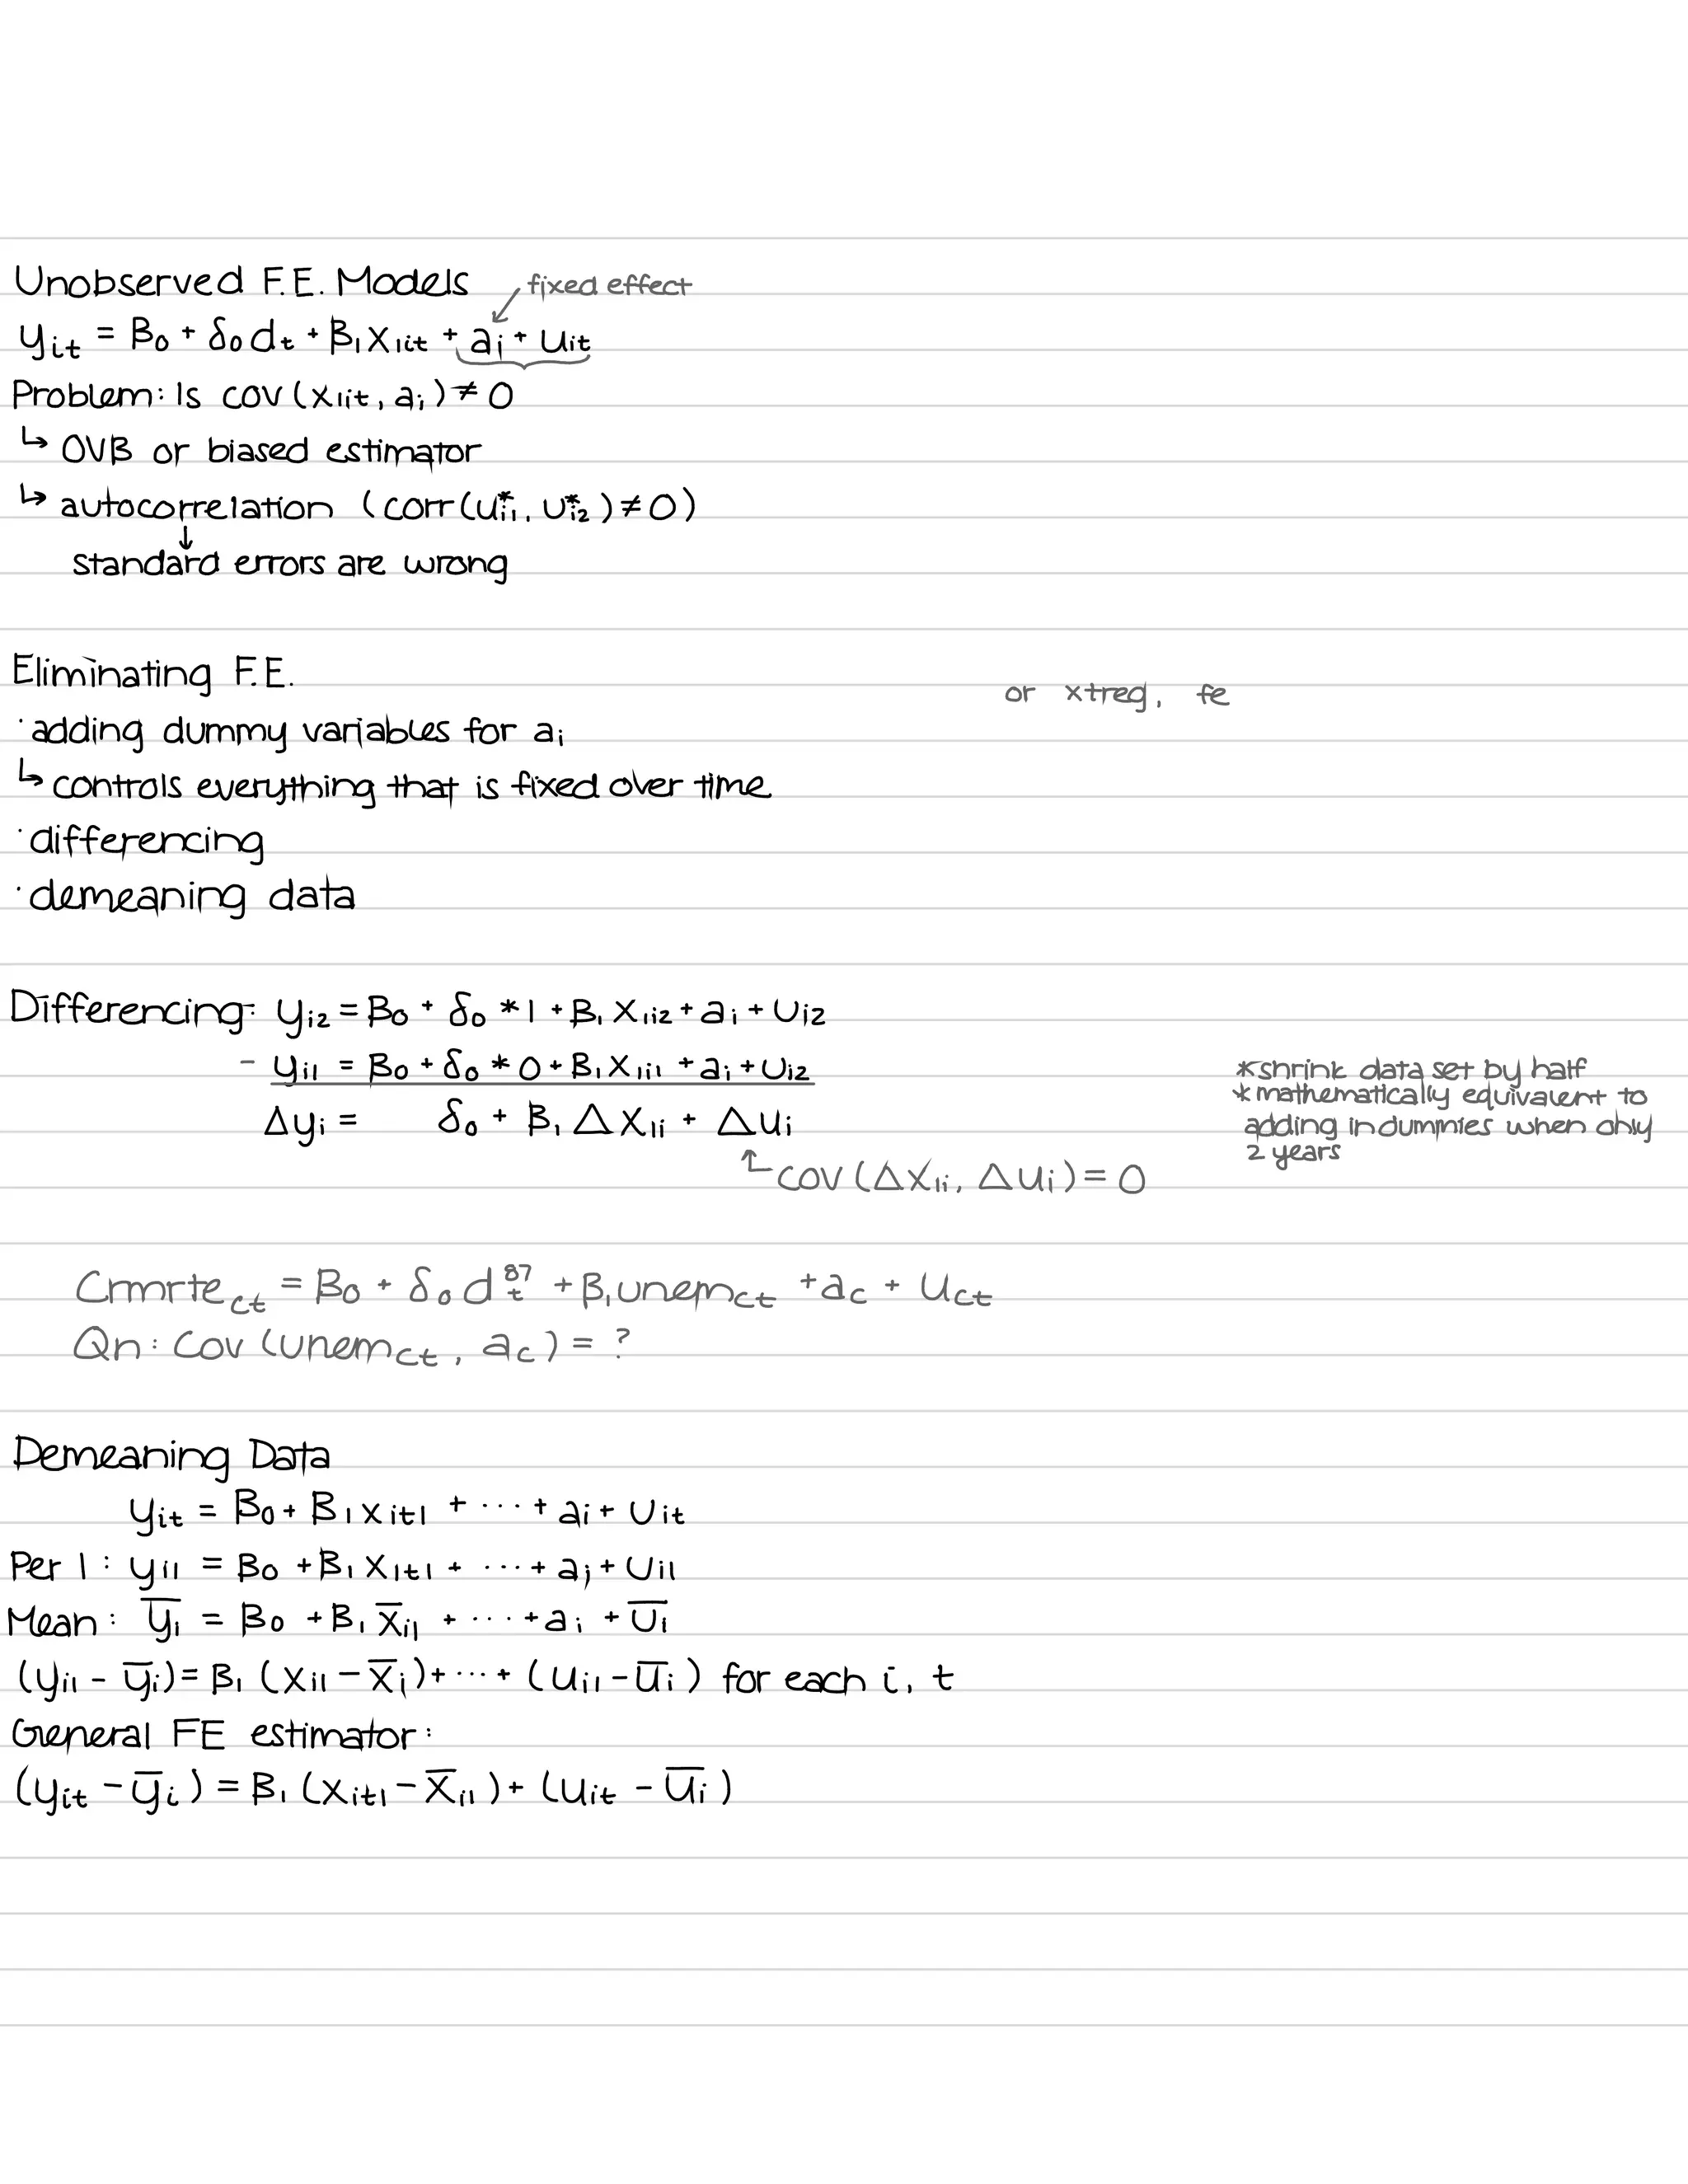 Unobserved F.E. Models
fixed effect
yit = B0 + δ0 dt + B1 X1it + ai + uit
Problem: Is cov (X1it, ai) ≠ 0
↳ OVB or biased estimator
↳ autocorrelation (corr(u*i1, u*i2) ≠ 0)
↓
standard errors are wrong
Eliminating F.E.
or xtreg, fe
· adding dummy variables for ai
↳ controls everything that is fixed over time
· differencing
· demeaning data
Differencing: yi2 = B0 + δ0 * 1 + B1 X1i2 + ai + Ui2
- yi1 = B0 + δ0 * 0 + B1 X1i1 + ai + Ui2
*shrink data set by half
*mathematically equivalent to
adding in dummies when only
2 years
Δyi = δ0 + B1 ΔX1i + Δui
cov (ΔX1i, Δui) = 0
Crmrtect = B0 + δ0 d87t + B1 unemct + ac + uct
Qn: Cov (unemct, ac) = ?
Demeaning Data
yit = B0 + B1 Xit1 + ... + ai + Uit
Per 1: yi1 = B0 + B1 X1t1 + ... + ai + Ui1
Mean: y̅i = B0 + B1 X̅i1 + ... + ai + U̅i
(yi1 - y̅i) = B1 (Xi1 - X̅i) + ... + (ui1 - u̅i) for each i, t
General FE estimator:
(yit - y̅i) = B1 (Xit1 - X̅i1) + (uit - u̅i)